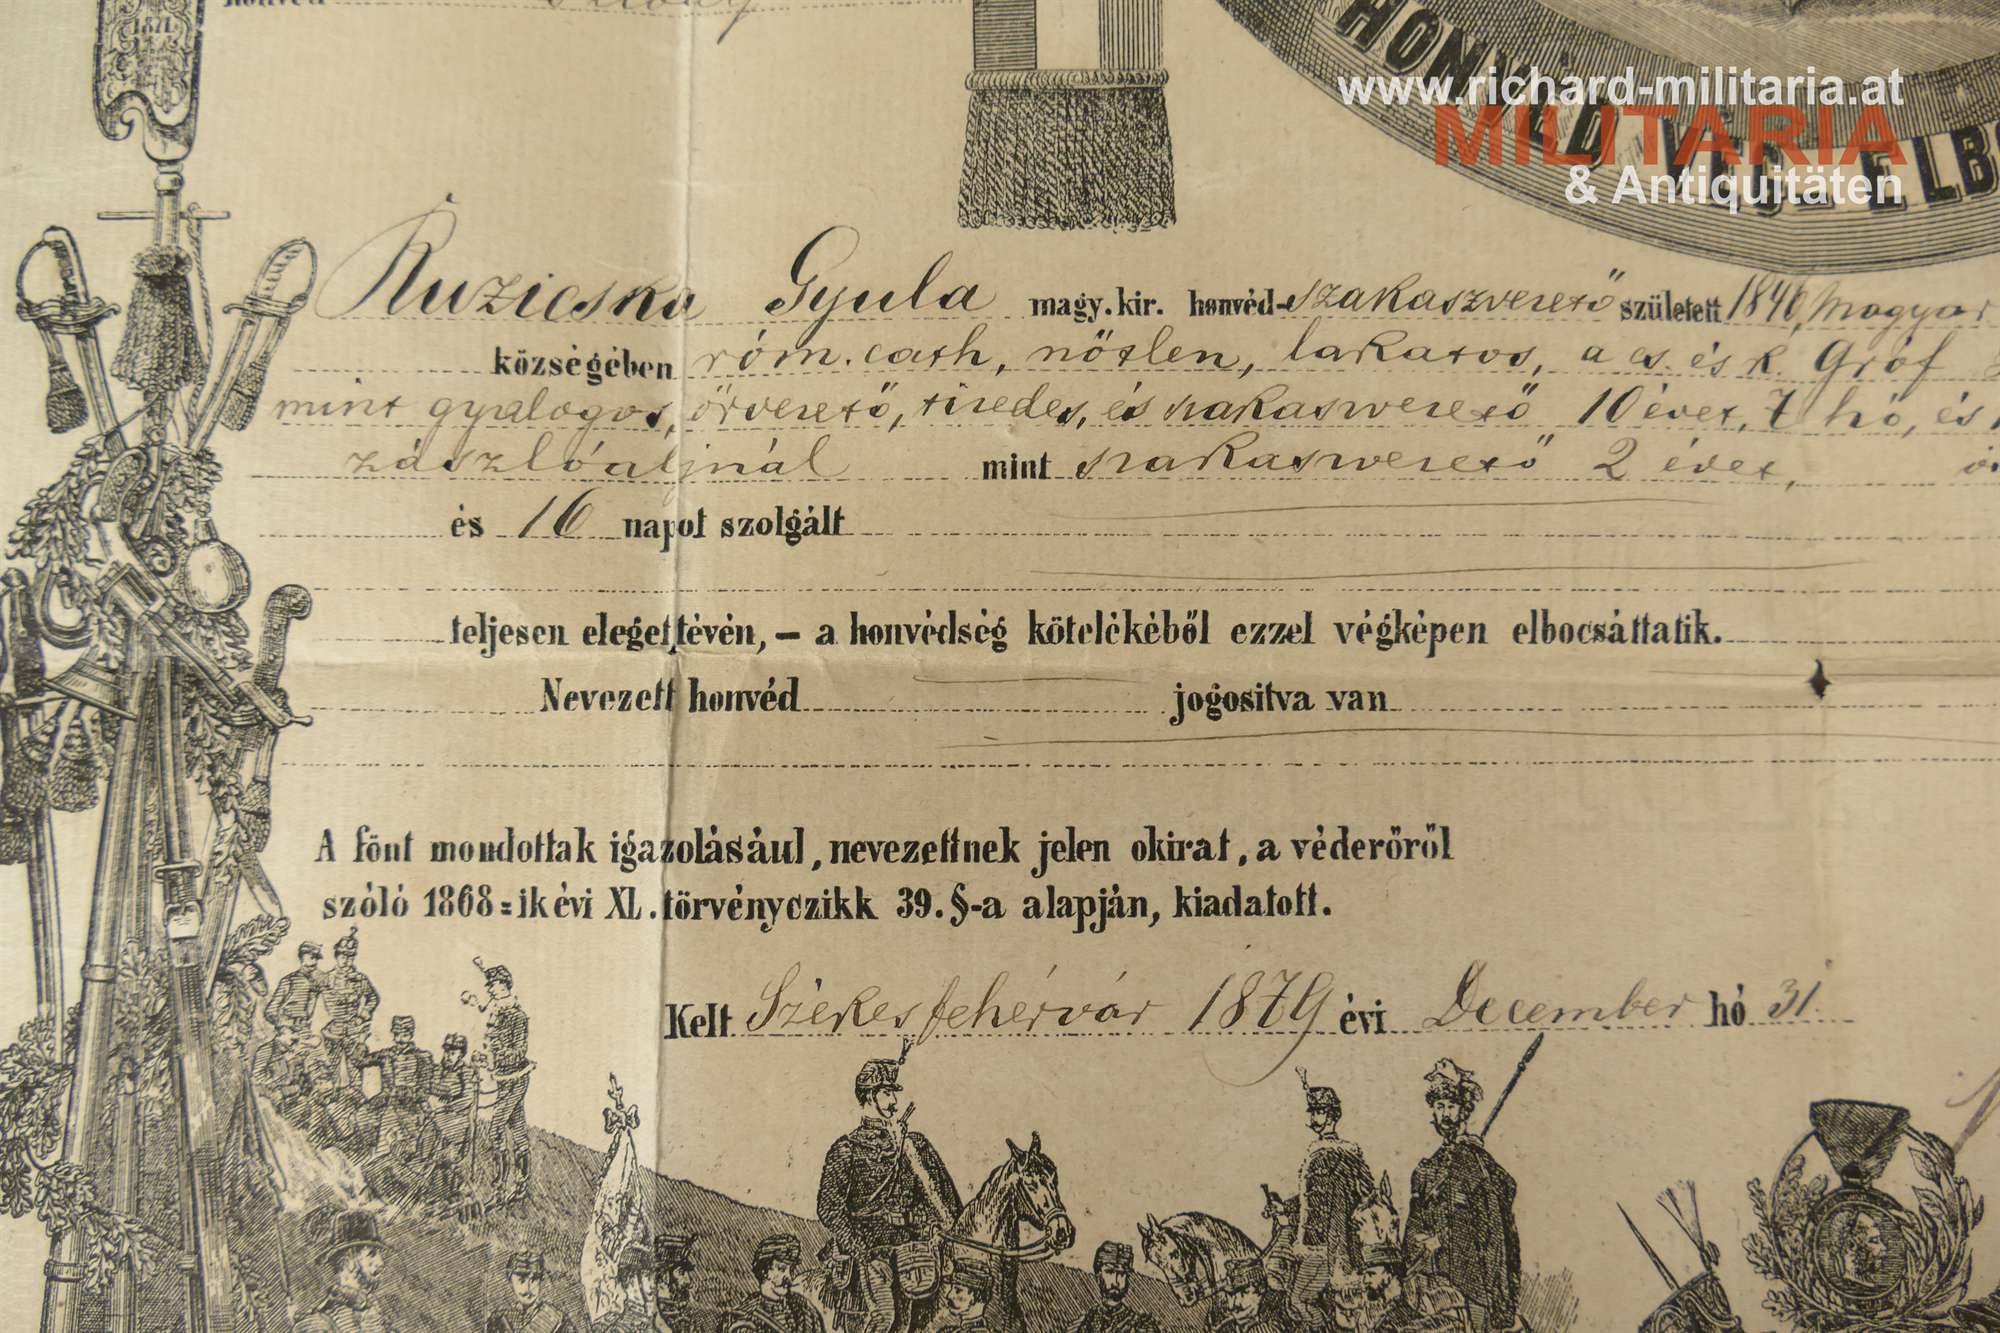 1871
honvéd
HONVÉD VÉG-ELB
www.richard-militaria.at
MILITARIA
& Antiquitäten
Ruzicska Gyula magy. kir. honvéd-szakaszvezető született 1846, Magyar
községében róm. cath, nőtlen, lakatos, a cs. és k. Gróf
mint gyalogos, őrvezető, tizedes, és szakaszvezető 10 évet, 7 hó, és
zászlóaljnál mint szakaszvezető 2 évet,
és 16 napot szolgált
teljesen eleget tévén, – a honvédség kötelékéből ezzel végképen elbocsáttatik.
Nevezett honvéd jogositva van
A fönt mondottak igazolásául, nevezettnek jelen okirat, a véderőről
szóló 1868=ik évi XL. törvényczikk 39. §-a alapján, kiadatott.
Kelt Székesfehérvár 1879 évi December hó 31.